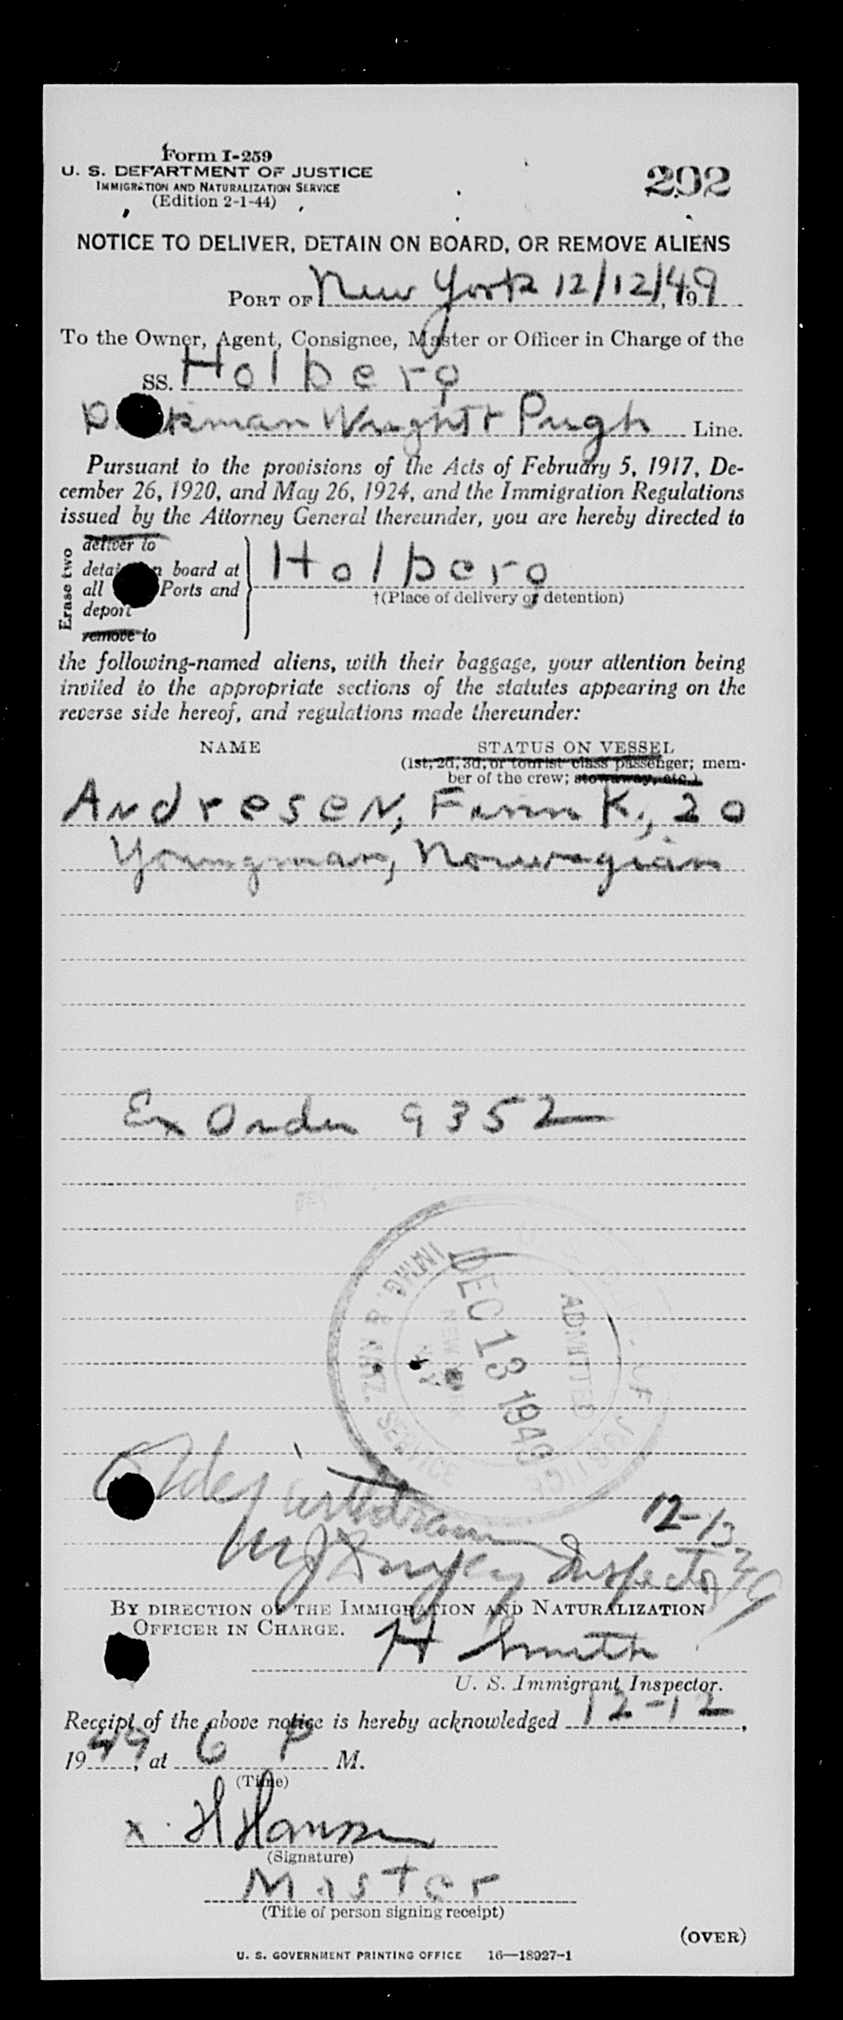 Form I-259
U. S. DEPARTMENT OF JUSTICE
IMMIGRATION AND NATURALIZATION SERVICE
(Edition 2-1-44)
292
NOTICE TO DELIVER, DETAIN ON BOARD, OR REMOVE ALIENS
PORT OF New York 12/12/49
To the Owner, Agent, Consignee, Master or Officer in Charge of the
SS. Holberg
Wright & Pugh Line.
Pursuant to the provisions of the Acts of February 5, 1917, De-
cember 26, 1920, and May 26, 1924, and the Immigration Regulations
issued by the Attorney General thereunder, you are hereby directed to
Erase two
deliver to
board at
all Ports and
deport
remove to
Holberg
†(Place of delivery or detention)
the following-named aliens, with their baggage, your attention being
invited to the appropriate sections of the statutes appearing on the
reverse side hereof, and regulations made thereunder:
NAME STATUS ON VESSEL
(1st, 2d, 3d, or tourist class passenger; mem-
ber of the crew; stowaway, etc.)
Andresen, Finn K., 20
Youngman, Norwegian
Ex Order 9352
IMMIG. & NATZ. SERVICE
OF JUSTICE
ADMITTED
DEC 13 1949
NEW YORK
N.Y.
withdrawn
12-13
Inspector 49
BY DIRECTION OF THE IMMIGRATION AND NATURALIZATION
OFFICER IN CHARGE.
H Smith
U. S. Immigrant Inspector.
Receipt of the above notice is hereby acknowledged 12-12,
1949, at 6 P M.
(Time)
x H Hansen
(Signature)
Master
(Title of person signing receipt)
(OVER)
U. S. GOVERNMENT PRINTING OFFICE 16—18927-1